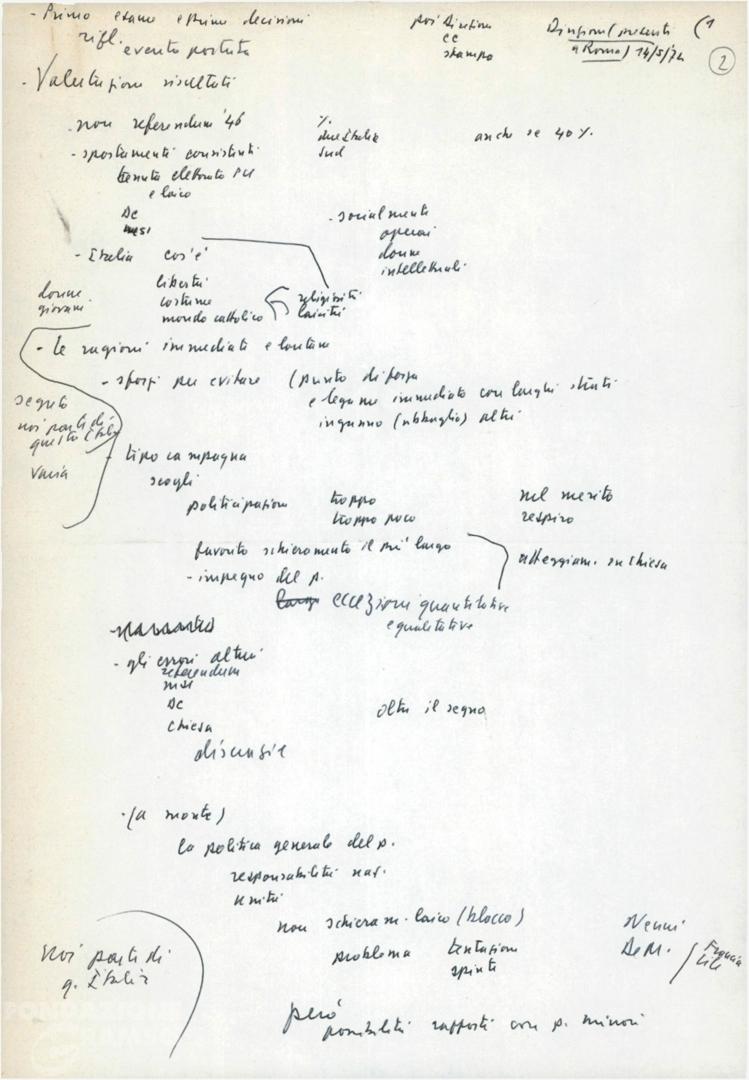 - Primo esame e prime decisioni
rifl. evento portata
poi Direzione
CC
stampa
Direzione (presenti
a Roma) 14/5/74
(1
2
- Valutazione risultati
- non referendum '46
%
due Italie
sud
anche se 40%
- spostamenti consistenti
tenuta elettorato PCI
e laico
DC
msi
- socialmente
operai
donne
intellettuali
- Italia cos'è
libertà
costume
mondo cattolico
religiosità
laicità
donne
giovani
- le ragioni immediate e lontane
- sforzi per evitare (punto di forza
e legame immediato con larghi strati
inganno (abbaglio) altri
segreto
noi parte di
questa Italia
varia
- tipo campagna
scogli
politicizzazione
troppo
troppo poco
nel merito
respiro
favorito schieramento il più largo
atteggiam. su chiesa
- impegno del p.
eccezioni quantitative
e qualitative
- gli errori altrui
referendum
msi
DC
chiesa
oltre il segno
discussie
- (a monte)
la politica generale del p.
responsabilità naz.
unità
non schieram. laico (blocco)
problema
tentazioni
spinte
Nenni
De M.
Francia
Cile
noi parte di
q. Italia
però
possibilità rapporti con p. minori